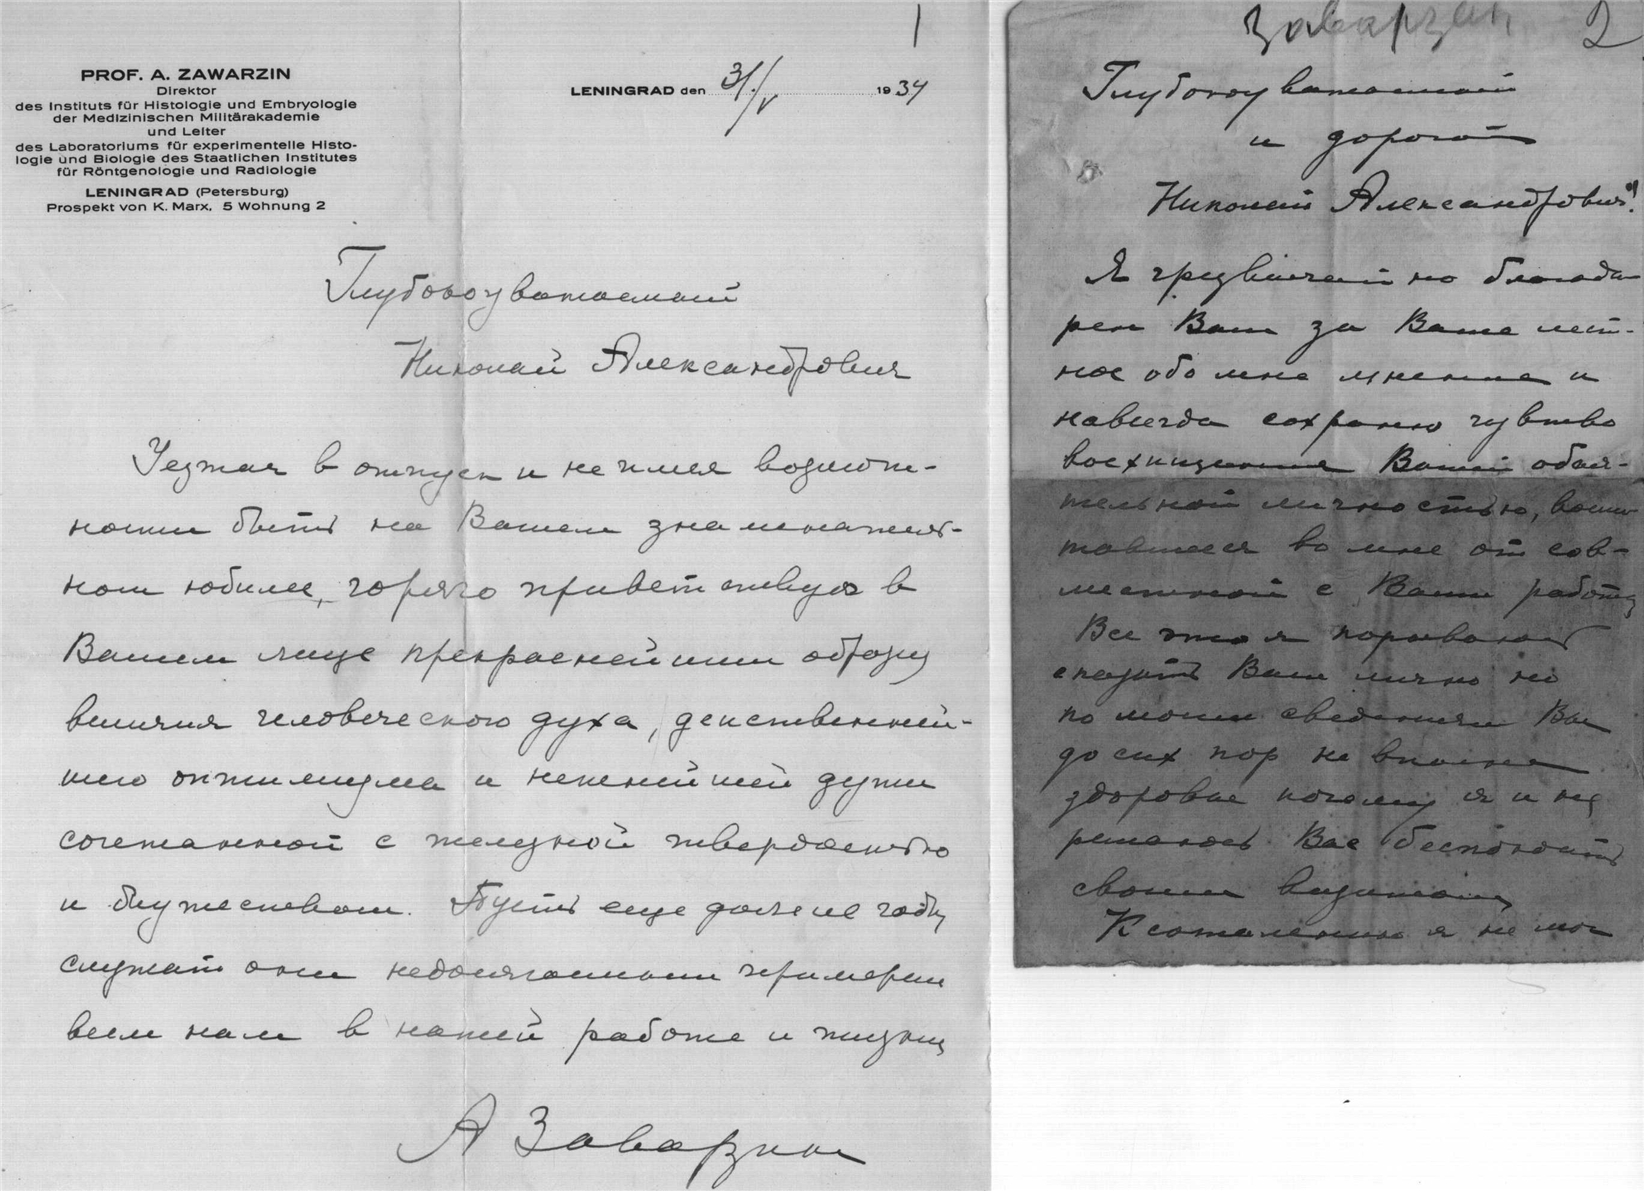 1
PROF. A. ZAWARZIN
Direktor
des Instituts für Histologie und Embryologie
der Medizinischen Militärakademie
und Leiter
des Laboratoriums für experimentelle Histo-
logie und Biologie des Staatlichen Institutes
für Röntgenologie und Radiologie
LENINGRAD (Petersburg)
Prospekt von K. Marx, 5 Wohnung 2
LENINGRAD den 31/V 1934
Глубокоуважаемый
Николай Александрович
Уезжая в отпуск и не имея возмож-
ности быть на Вашем знаменатель-
ном юбилее, горячо приветствую в
Вашем лице прекраснейший образец
величия человеческого духа, действенней-
шего оптимизма и нежнейшей души
сочетанной с железной твердостью
и мужеством. Пусть еще долгие годы
служат они недосягаемым примером
всем нам в нашей работе и жизни
А Заварзин
Заварзин 2
Глубокоуважаемый
и дорогой
Николай Александрович!
Я чрезвычайно благода
рен Вам за Ваше лест-
ное обо мне мнение и
навсегда сохраню чувство
восхищения Вашей обая-
тельной личностью, воспи
тавшееся во мне от сов-
местной с Вами работы
Все это я порывался
сказать Вам лично но
по моим сведениям Вы
до сих пор не вполне
здоровы почему я и не
решаюсь Вас беспокоить
своим визитом
К сожалению я не мог